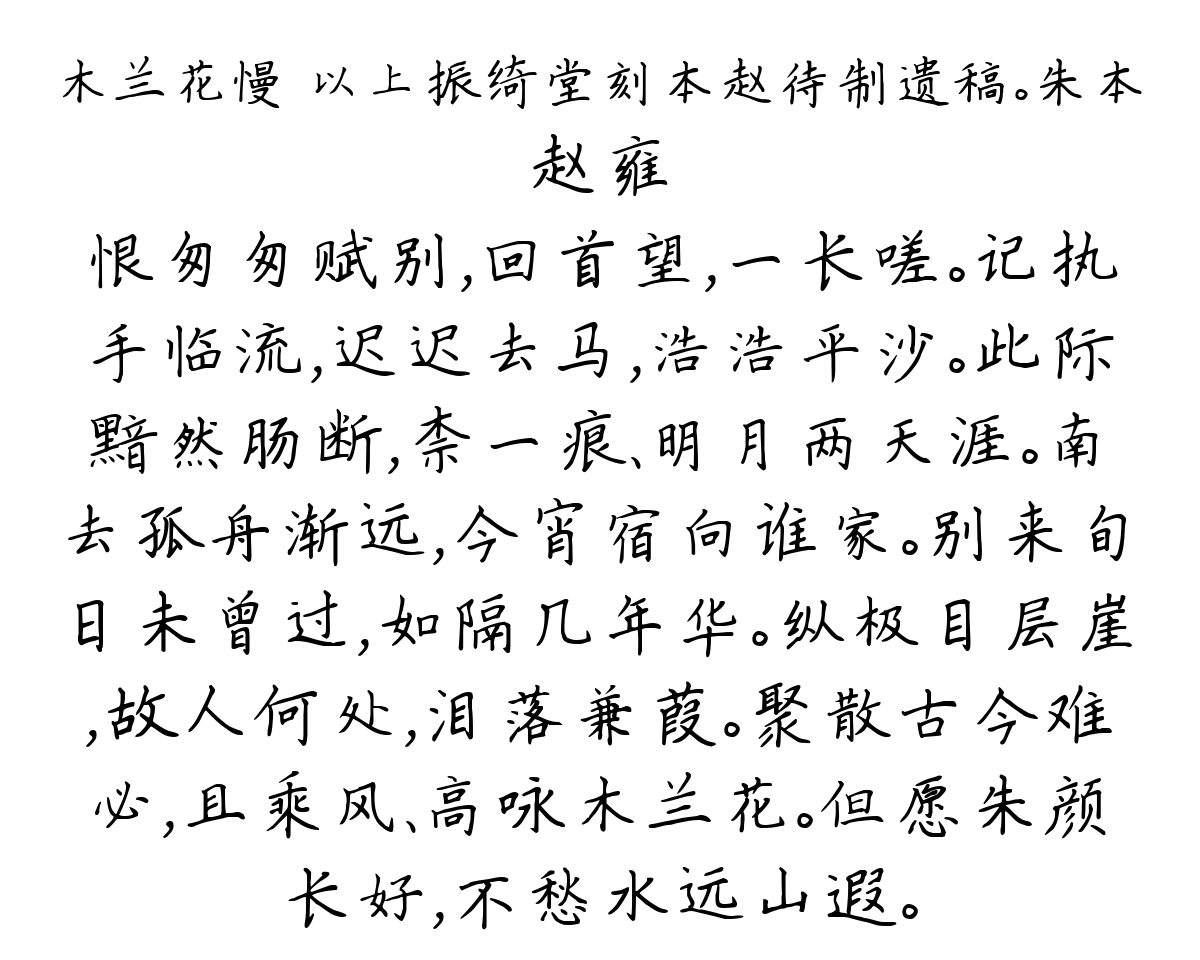 木兰花慢 以上振绮堂刻本赵待制遗稿。朱本
赵雍
恨匆匆赋别,回首望,一长嗟。记执
手临流,迟迟去马,浩浩平沙。此际
黯然肠断,柰一痕、明月两天涯。南
去孤舟渐远,今宵宿向谁家。别来旬
日未曾过,如隔几年华。纵极目层崖
,故人何处,泪落兼葭。聚散古今难
必,且乘风、高咏木兰花。但愿朱颜
长好,不愁水远山遐。